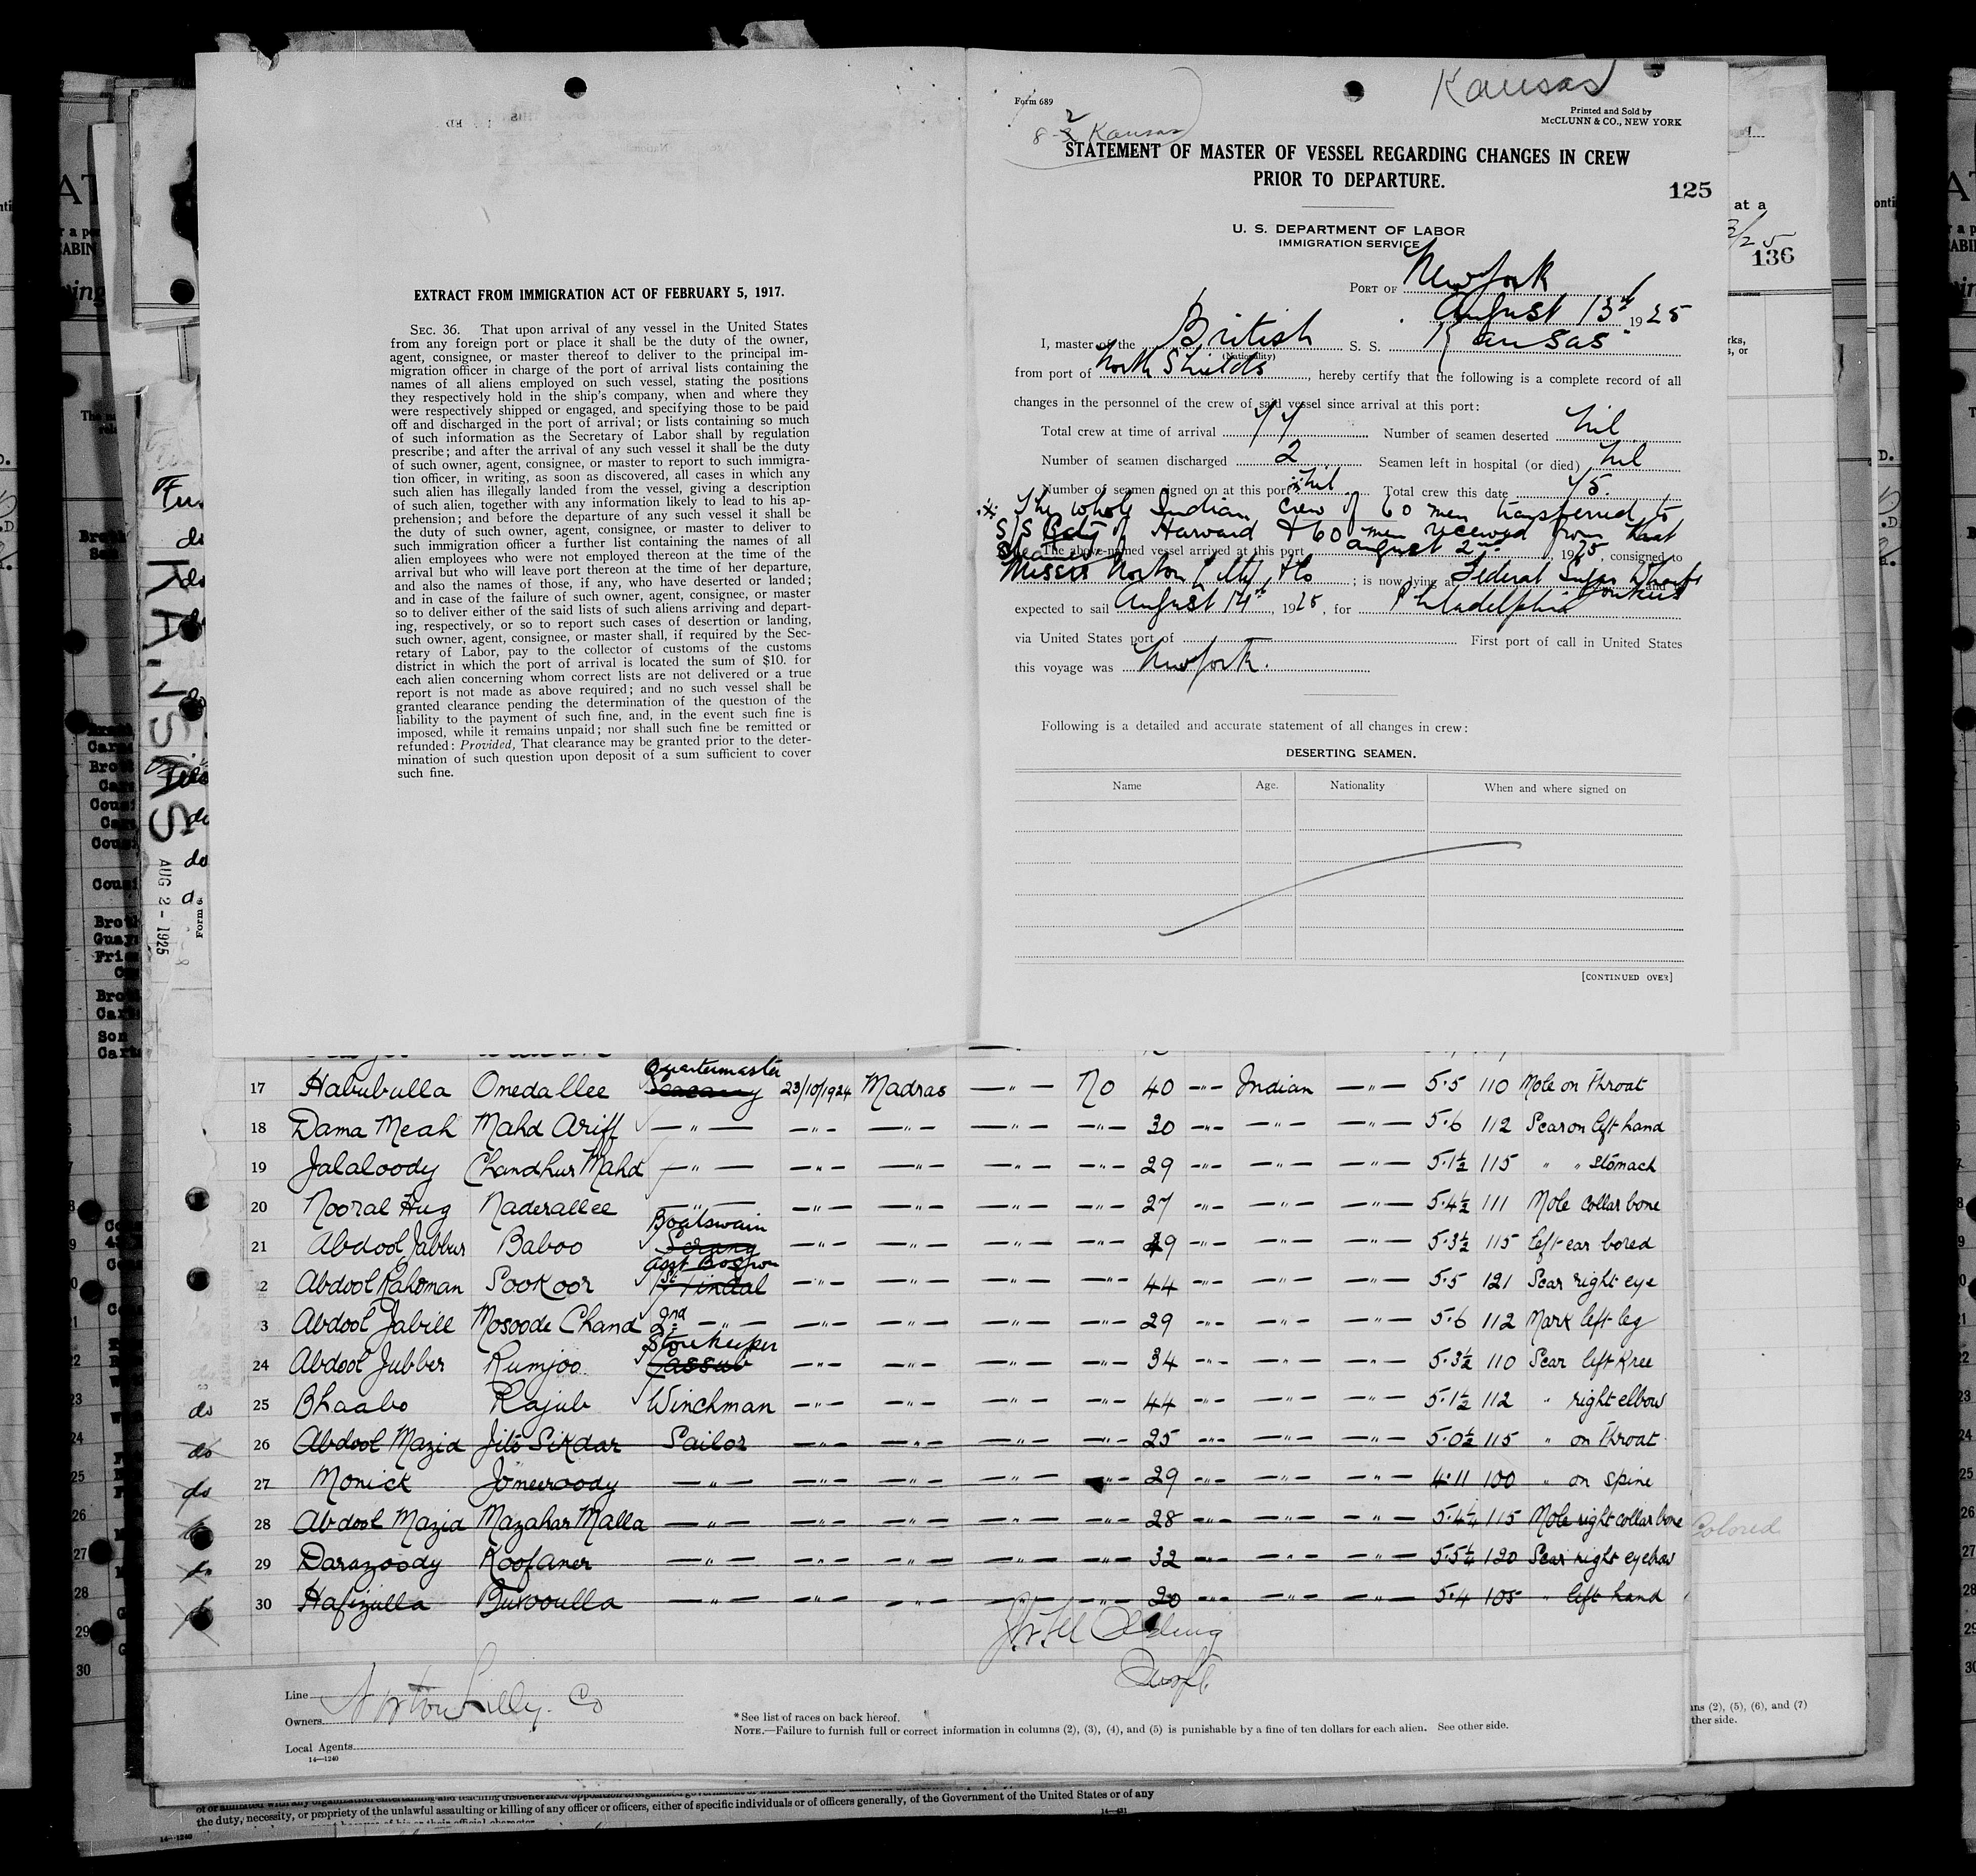 EXTRACT FROM IMMIGRATION ACT OF FEBRUARY 5, 1917.
SEC. 36. That upon arrival of any vessel in the United States
from any foreign port or place it shall be the duty of the owner,
agent, consignee, or master thereof to deliver to the principal im-
migration officer in charge of the port of arrival lists containing the
names of all aliens employed on such vessel, stating the positions
they respectively hold in the ship's company, when and where they
were respectively shipped or engaged, and specifying those to be paid
off and discharged in the port of arrival; or lists containing so much
of such information as the Secretary of Labor shall by regulation
prescribe; and after the arrival of any such vessel it shall be the duty
of such owner, agent, consignee, or master to report to such immigra-
tion officer, in writing, as soon as discovered, all cases in which any
such alien has illegally landed from the vessel, giving a description
of such alien, together with any information likely to lead to his ap-
prehension; and before the departure of any such vessel it shall be
the duty of such owner, agent, consignee, or master to deliver to
such immigration officer a further list containing the names of all
alien employees who were not employed thereon at the time of the
arrival but who will leave port thereon at the time of her departure,
and also the names of those, if any, who have deserted or landed;
and in case of the failure of such owner, agent, consignee, or master
so to deliver either of the said lists of such aliens arriving and depart-
ing, respectively, or so to report such cases of desertion or landing,
such owner, agent, consignee, or master shall, if required by the Sec-
retary of Labor, pay to the collector of customs of the customs
district in which the port of arrival is located the sum of $10. for
each alien concerning whom correct lists are not delivered or a true
report is not made as above required; and no such vessel shall be
granted clearance pending the determination of the question of the
liability to the payment of such fine, and, in the event such fine is
imposed, while it remains unpaid; nor shall such fine be remitted or
refunded: Provided, That clearance may be granted prior to the deter-
mination of such question upon deposit of a sum sufficient to cover
such fine.
Kansas
Form 689
Printed and Sold by
McCLUNN & CO., NEW YORK
Kansas
STATEMENT OF MASTER OF VESSEL REGARDING CHANGES IN CREW
PRIOR TO DEPARTURE.
125
U. S. DEPARTMENT OF LABOR
IMMIGRATION SERVICE
PORT OF New York
August 13th 1925
I, master of the British S. S. Kansas
(Nationality)
from port of North Shields, hereby certify that the following is a complete record of all
changes in the personnel of the crew of said vessel since arrival at this port:
Total crew at time of arrival 77 Number of seamen deserted Nil
Number of seamen discharged 2 Seamen left in hospital (or died) Nil
Number of seamen signed on at this port Nil Total crew this date 75.
The whole Indian Crew of 60 men transferred to
S/S City of Harvard & 60 men received from that
Steamer
The above-named vessel arrived at this port August 2nd, 1925, consigned to
Messrs Norton Lilly & Co; is now lying at Federal Sugar Wharf Yonkers and is
expected to sail August 14th, 1925, for Philadelphia
via United States port of First port of call in United States
this voyage was New York.
Following is a detailed and accurate statement of all changes in crew:
DESERTING SEAMEN.
Name Age. Nationality When and where signed on
[CONTINUED OVER]
at a
136
KANSAS
AUG 2 - 1925
17 Habubulla Onedallee Quartermaster Seacunny 23/10/1924 Madras —"— No 40 —"— Indian —"— 5·5 110 Mole on Throat
18 Dama Meah Mahd Ariff —"— —"— —"— —"— —"— 30 —"— —"— —"— 5·6 112 Scar on left hand
19 Jalaloody Chandhur Mahd —"— —"— —"— —"— —"— 29 —"— —"— —"— 5·1½ 115 " " Stomach
20 Nooral Hug Naderallee —"— —"— —"— —"— —"— 27 —"— —"— —"— 5·4½ 111 Mole collar bone
21 Abdool Jabbur Baboo Boatswain Serang —"— —"— —"— —"— 49 —"— —"— —"— 5·3½ 115 left ear bored
2 Abdool Rahoman Sookoor Asst Bos'n 1st Tindal —"— —"— —"— —"— 44 —"— —"— —"— 5·5 121 Scar right eye
3 Abdool Jabill Mosoode Chand 2nd —"— —"— —"— —"— —"— 29 —"— —"— —"— 5·6 112 Mark left leg
24 Abdool Jubber Rumjoo Storekeeper Cassub —"— —"— —"— —"— 34 —"— —"— —"— 5·3½ 110 Scar left Knee
do 25 Bhaabo Rajub Winchman —"— —"— —"— —"— 44 —"— —"— —"— 5·1½ 112 " right elbow
do 26 Abdool Mazid Jito Sikdar Sailor —"— —"— —"— —"— 25 —"— —"— —"— 5·0½ 115 " on Throat
do 27 Monick Jomeeroody —"— —"— —"— —"— —"— 29 —"— —"— —"— 4·11 100 " on spine
28 Abdool Mazid Mazahar Malla —"— —"— —"— —"— —"— 28 —"— —"— —"— 5·4¼ 115 Mole right collar bone
Colored
29 Darazoody Koofaner —"— —"— —"— —"— —"— 32 —"— —"— —"— 5·5¼ 120 Scar right eyebrow
30 Hafizulla Burooulla —"— —"— —"— —"— —"— 20 —"— —"— —"— 5·4 105 " left hand
Line Norton Lilly Co
Owners
Local Agents
14—1240
* See list of races on back hereof.
NOTE.—Failure to furnish full or correct information in columns (2), (3), (4), and (5) is punishable by a fine of ten dollars for each alien. See other side.
ns (2), (5), (6), and (7)
ther side.
the duty, necessity, or propriety of the unlawful assaulting or killing of any officer or officers, either of specific individuals or of officers generally, of the Government of the United States or of any
14—1240